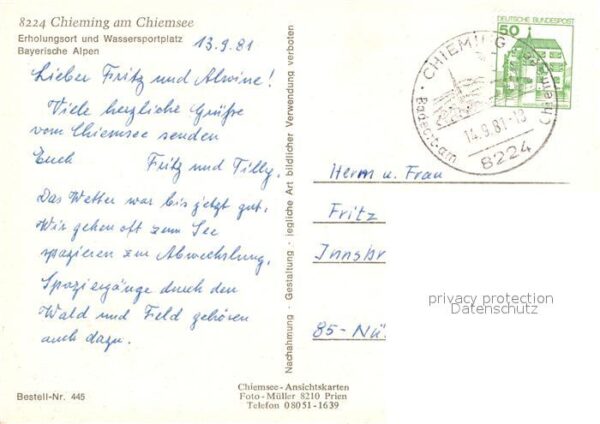 8224 Chieming am Chiemsee
Erholungsort und Wassersportplatz
Bayerische Alpen
13.9.81
Lieber Fritz und Alwine!
Viele herzliche Grüße
vom Chiemsee senden
Euch Fritz und Tilly.
Das Wetter war bis jetzt gut.
Wir gehen oft zum See
spazieren zur Abwechslung.
Spaziergänge durch den
Wald und Feld gehören
auch dazu.
Bestell-Nr. 445
Nachahmung - Gestaltung - jegliche Art bildlicher Verwendung verboten
Chiemsee-Ansichtskarten
Foto-Müller 8210 Prien
Telefon 08051-1639
DEUTSCHE BUNDESPOST
50
CHIEMING
Badeort am Chiemsee
14.9.81-18
8224
Herrn u. Frau
Fritz
Innsbr
85-Nü.
privacy protection
Datenschutz